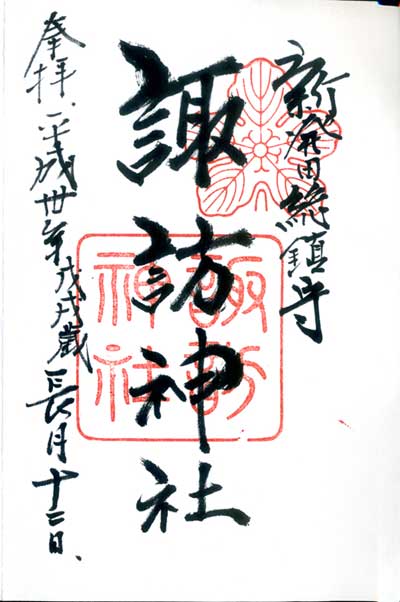 新発田総鎮守
諏訪神社
諏訪神社
奉拝、平成卅年戊戌歳長月十二日、